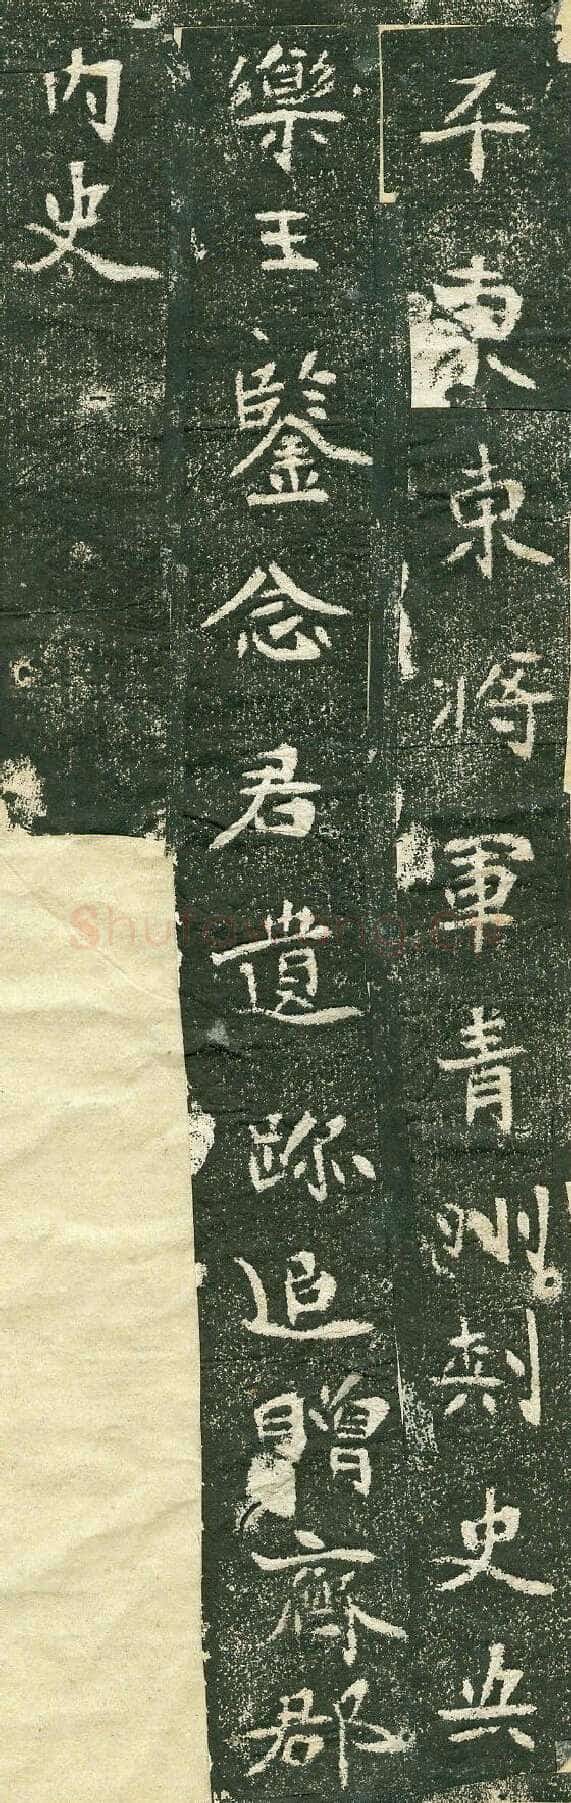 平東東將軍青州刾史兵
樂王鑒念君遺跡追贈齊郡
内史
Shufawang.cn